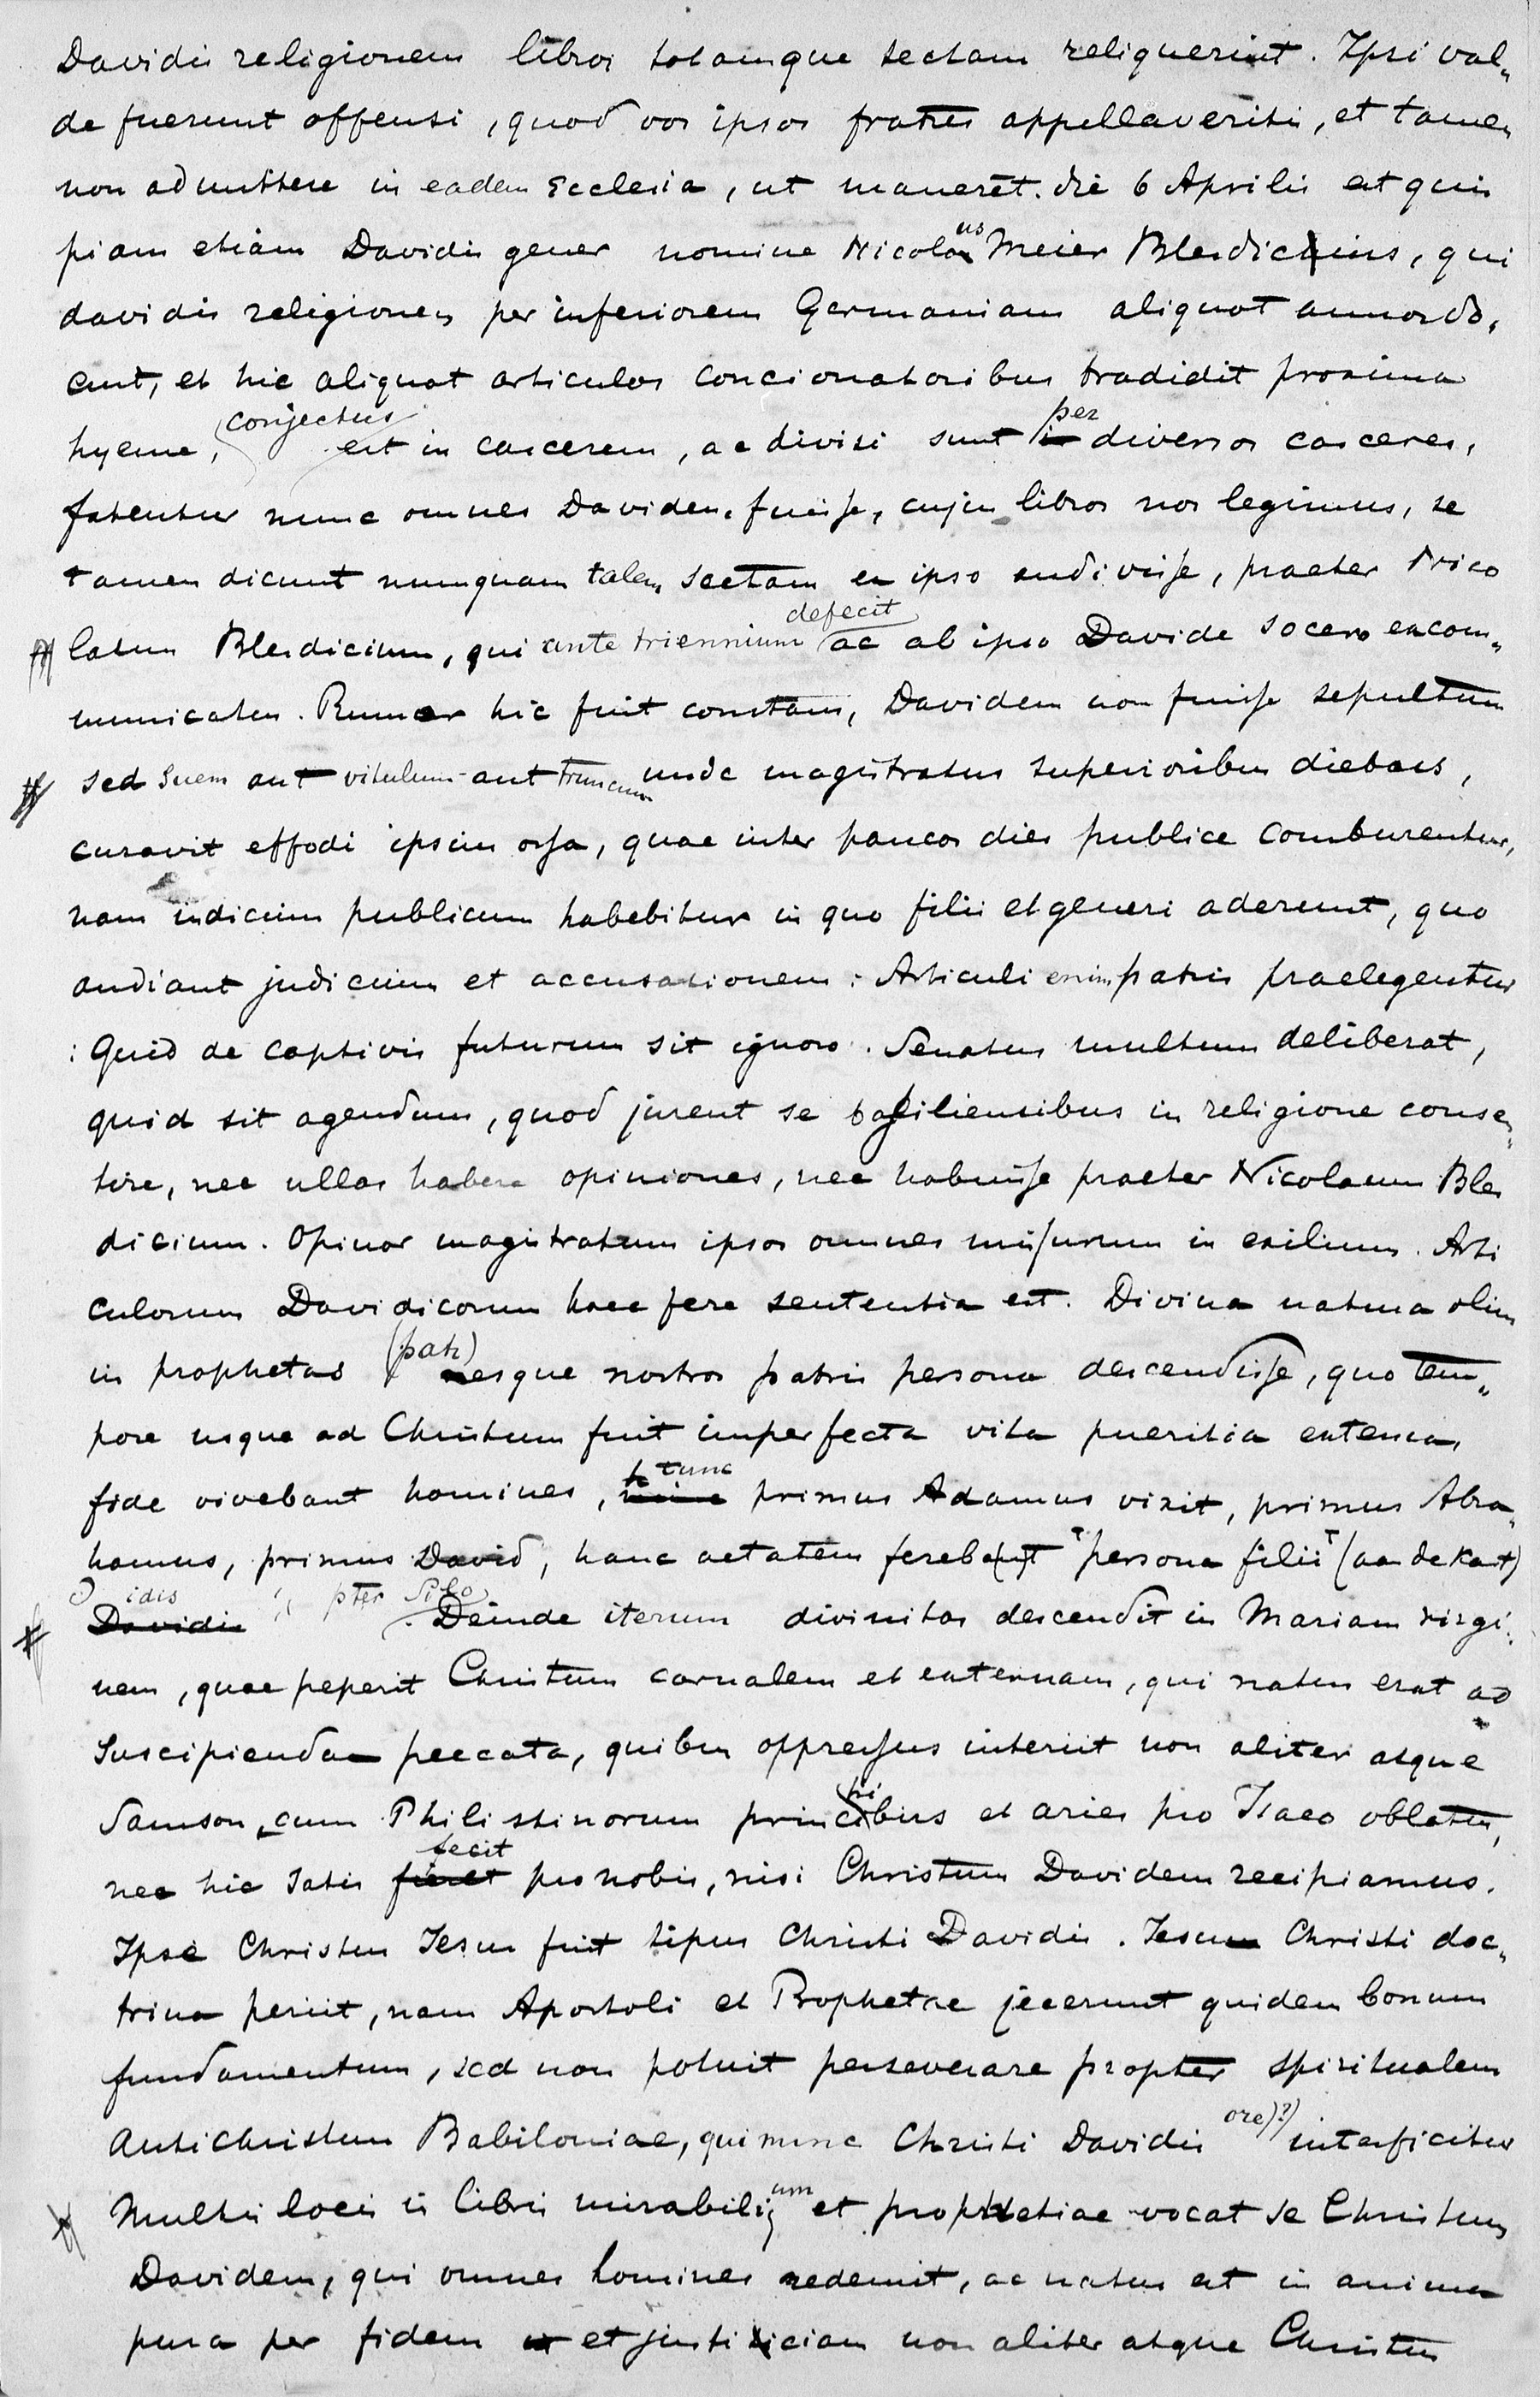 Davidis religionem libros totamque sectam reliquerint. Ipsi val„
de fuerunt offensi, quod vos ipsos fratres appellaveritis, et tamen
non admittere in eadem Ecclesia, ut maneret. die 6 Aprilis et quis
piam etiam Davidis gener nomine Nicolaus Meier Blesdickius, qui
davidis religionem per inferiorem Germaniam aliquot annos do,
cuit, et hic aliquot articulos concionatoribus tradidit proxima
hyeme, conjectus est in carcerem, ac divisi sunt per diversos carceres,
fatentur nunc omnes Davidem fuisse, cujus libros nos legimus, se
tamen dicunt nunquam talem sectam ex ipso audivisse, praeter Nico
laum Blesdicium, qui ante triennium defecit ac ab ipso Davide socero excom„
municatus. Rumor hic fuit constans, Davidem non fuisse sepultum
sed suem aut vitulum aut truncum unde magistratus superioribus diebus,
curavit effodi ipsius ossa, quae inter paucos dies publice comburentur,
nam iudicium publicum habebitur in quo filii et generi aderunt, quo
audiant judicium et accusationem: Articuli enim patris praelegentur
: Quid de captivis futurum sit ignoro. Senatus multum deliberat,
quid sit agendum, quod jurent se basiliensibus in religione consen„
tire, nec ullas habere opiniones, nec habuisse praeter Nicolaum Bles
dicium. Opinor magistratum ipsos omnes missurum in exilium. Arti
culorum Davidicorum haec fere sententia est. Divina natura olim
in prophetas (patr) esque nostros patris persona descendisse, quo tem„
pore usque ad Christum fuit imperfecta vita pueritia externa,
fide vivebant homines, tunc primus Adamus vixit, primus Abra„
hamus, primus David, hanc aetatem fereba(n)t persona filii (aan de kant)
Davidis idis pter Deinde iterum divinitas descendit in Mariam virgi„
nem, quae peperit Christum carnalem et externam, qui natus erat ad
suscipienda peccata, quibus oppressus interiit non aliter atque
Samson, cum Philistinorum principibus et aries pro Isaco oblatus,
nec hic satis fecit pro nobis, nisi Christum Davidem recipiamus.
Ipse Christus Iesus fuit tipus Christi Davidis. Iesu Christi doc„
trina periit, nam Apostoli et Prophetae jecerunt quidem bonum
fundamentum, sed non potuit perseverare propter spiritualem
Antichristum Babiloniae, qui nunc Christi Davidis ore)?) interficitur
Multis locis in libris mirabilium et prophetiae vocat se Christum
Davidem, qui omnes homines redemit, ac natus est in anima
pura per fidem et justiciam non aliter atque Christus